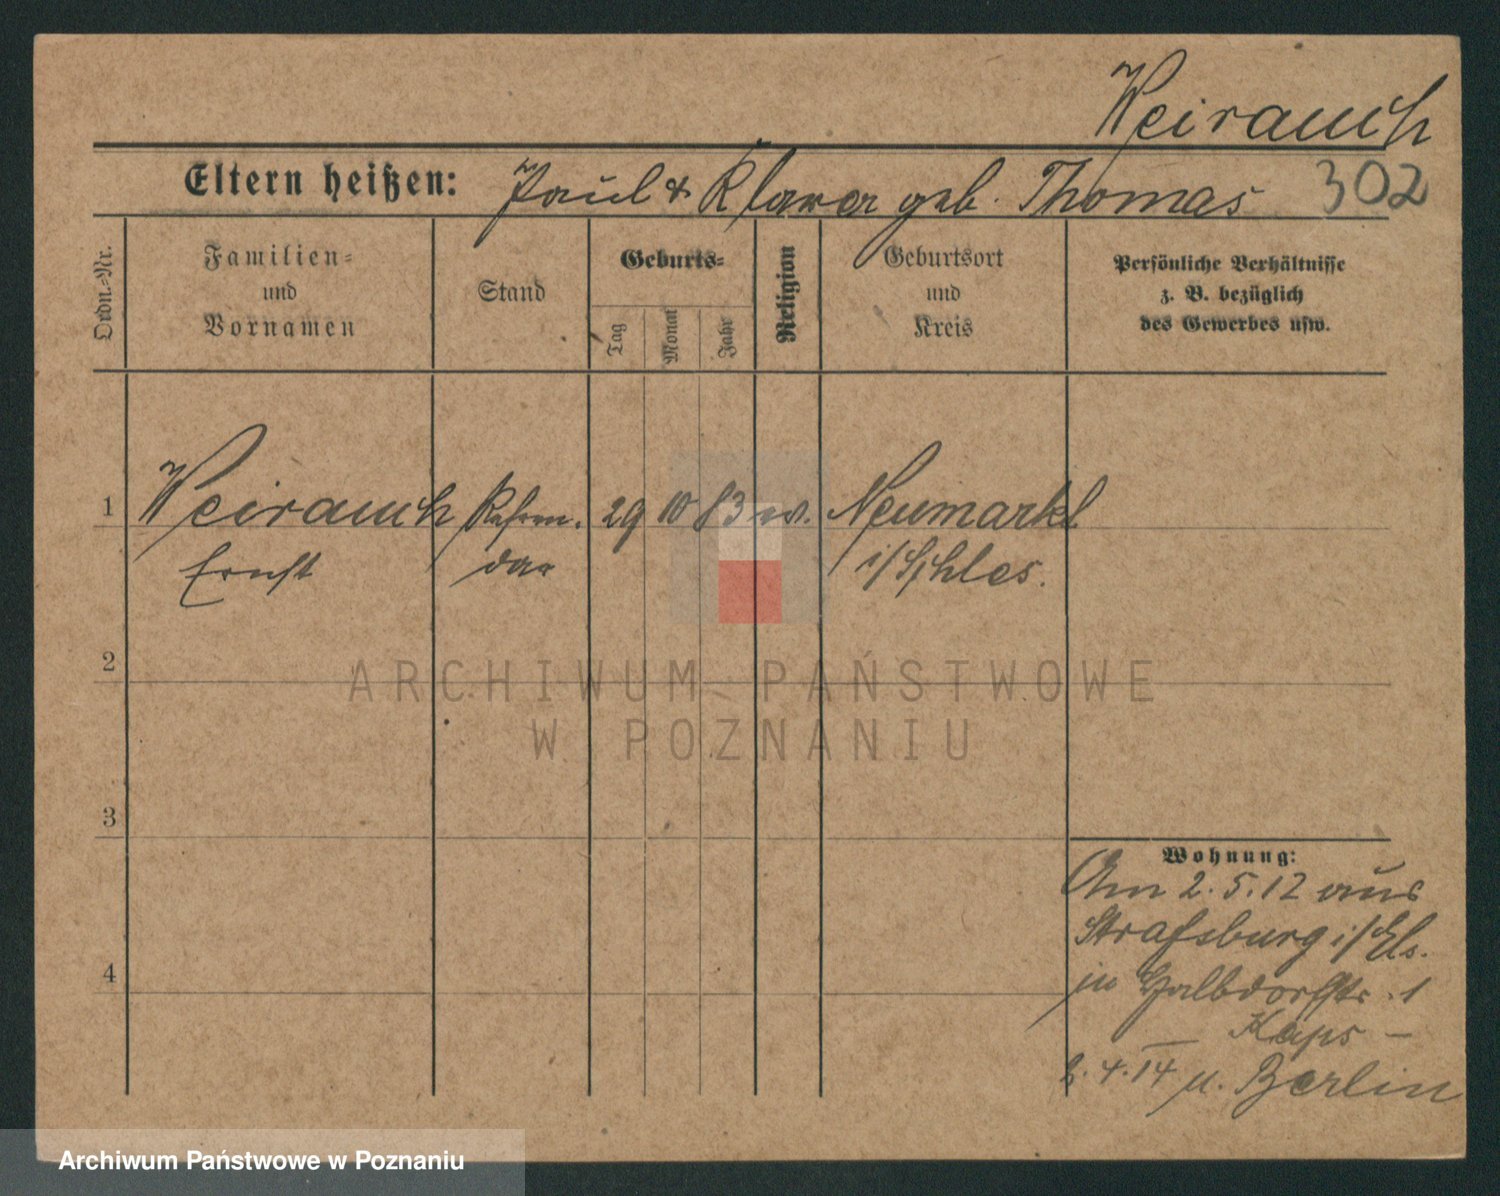 Weirauch
Eltern heißen: Paul & Klara geb. Thomas 302
Ordn.-Nr.
Familien-
und
Vornamen
Stand
Geburts-
Tag
Monat
Jahr
Religion
Geburtsort
und
Kreis
Persönliche Verhältnisse
z. B. bezüglich
des Gewerbes usw.
1 Weirauch Referen. 29 10 83 ev. Neumarkt
Ernst dar i/Schles.
2
3
4
Wohnung:
Am 2. 5. 12 aus
Strassburg i/Els.
in Halbdorfstr. 1
Kaps –
2. 4. 14 n. Berlin
ARCHIWUM PAŃSTWOWE
W POZNANIU
Archiwum Państwowe w Poznaniu